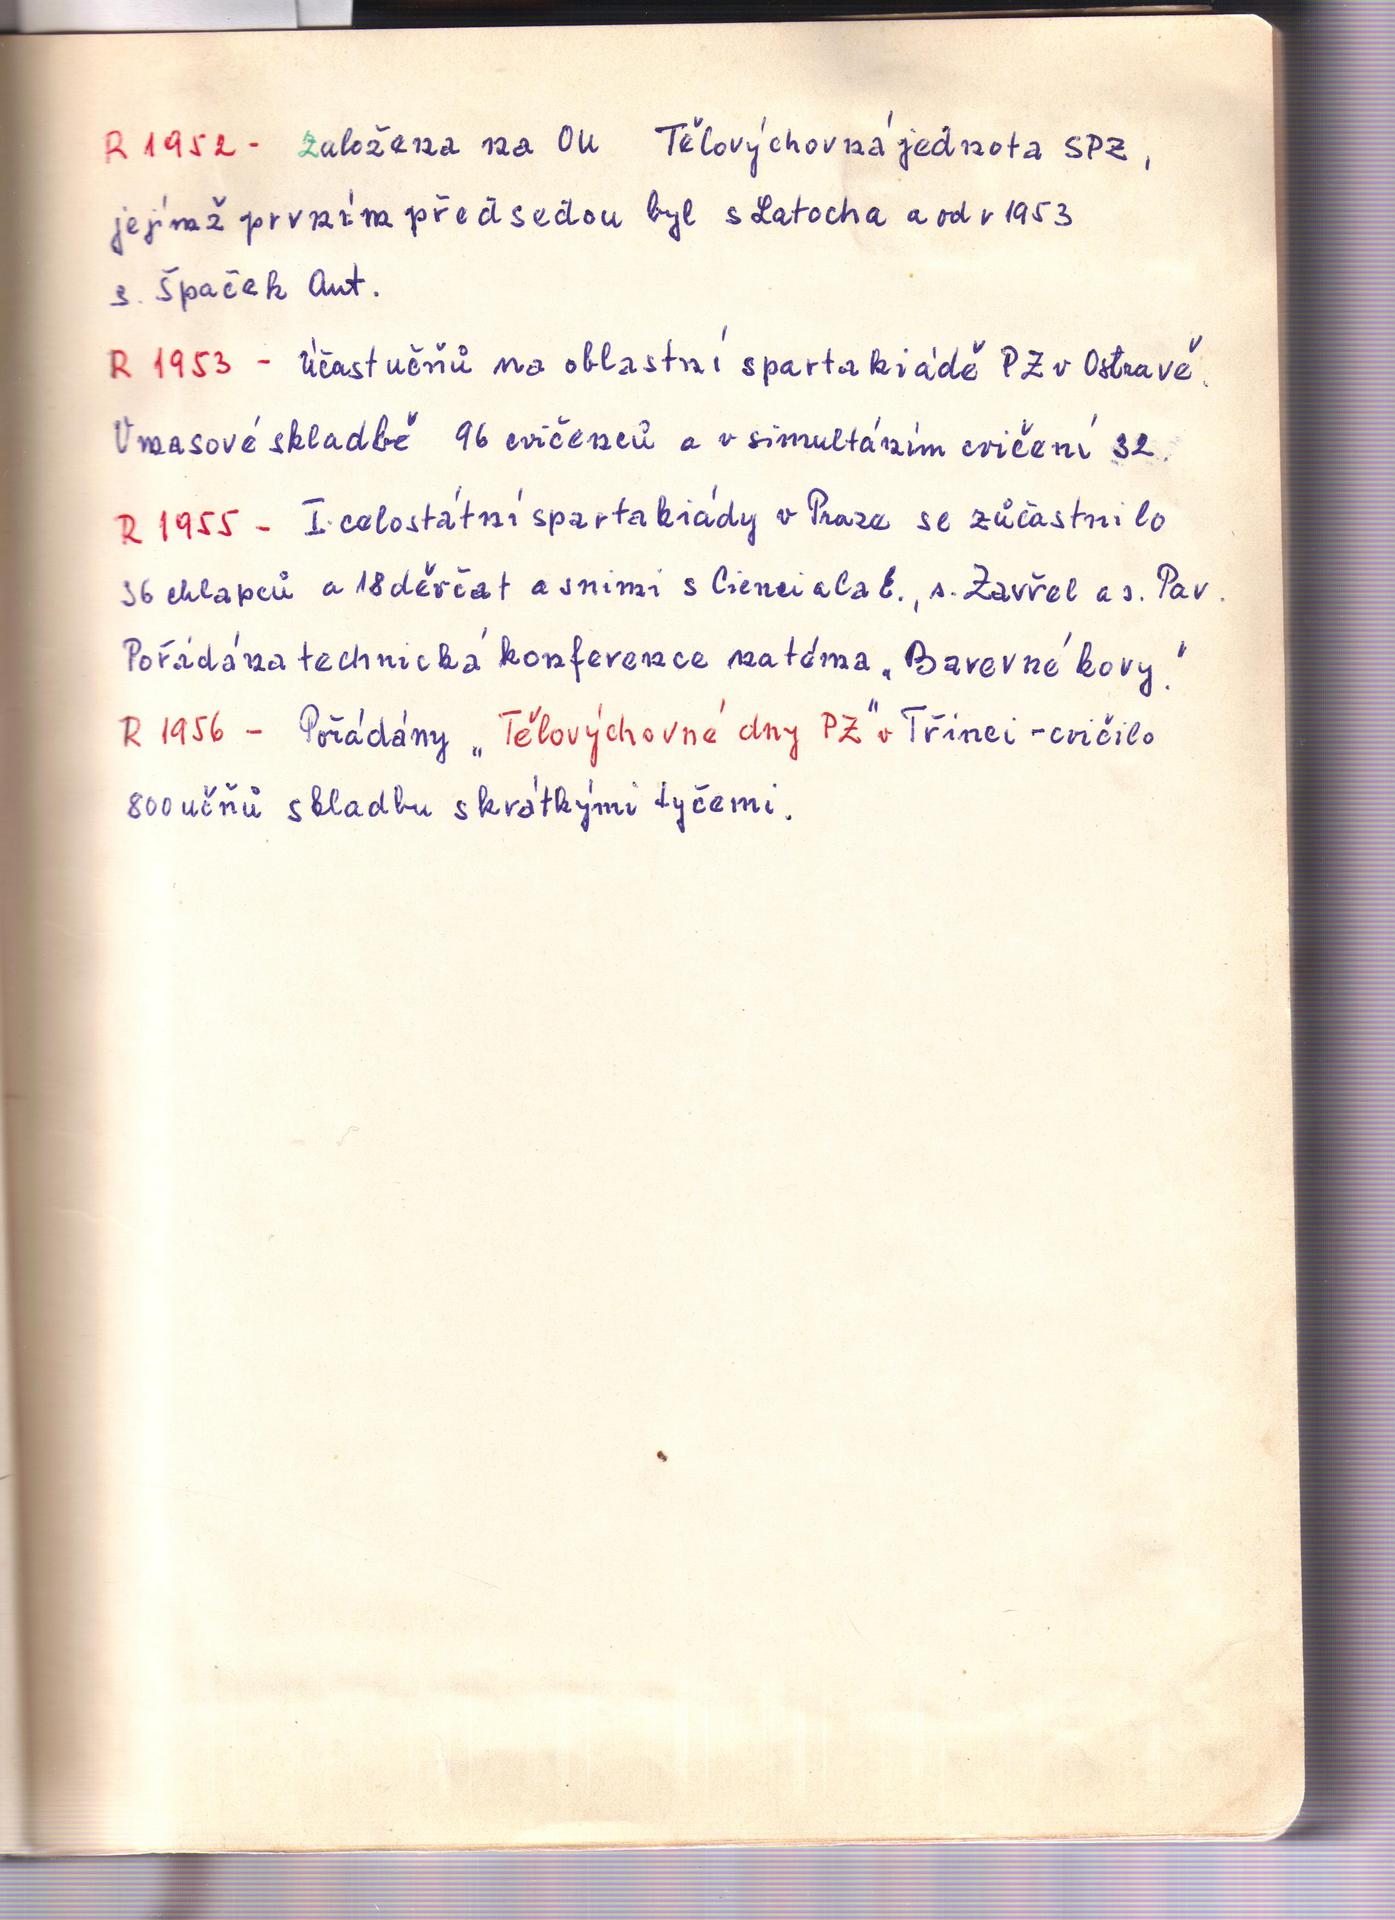 R 1952 - založena na OU Tělovýchovná jednota SPZ,
jejímž prvním předsedou byl s Latocha a od r 1953
s. Špaček Ant.
R 1953 - Účast učňů na oblastní spartakiádě PZ v Ostravě.
V masové skladbě 96 cvičenců a v simultáním cvičení 32.
R 1955 - I. celostátní spartakiády v Praze se zůčastnilo
36 chlapců a 18 děvčat a s nimi s Cienciala E., s. Zavřel a s. Pav.
Pořádána technická konference na téma „Barevné kovy."
R 1956 - Pořádány „Tělovýchovné dny PZ" v Třinci - cvičilo
800 učňů skladbu s krátkými tyčemi.